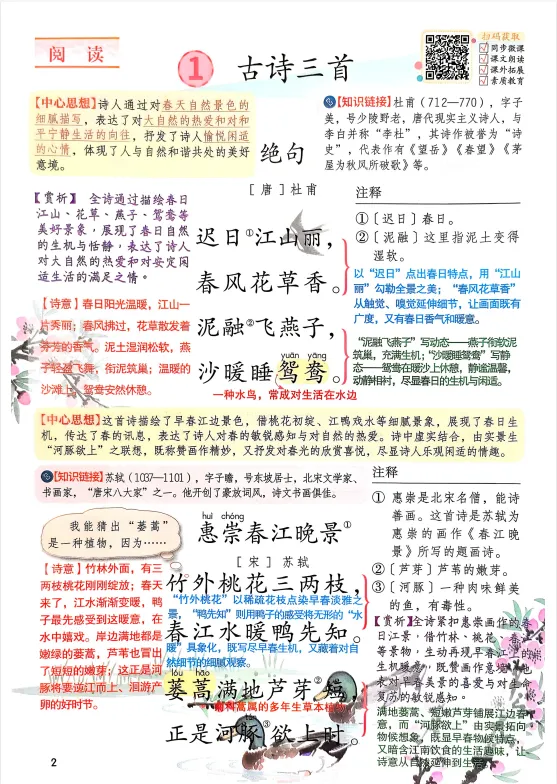 阅读
扫码获取
同步微课
课文朗读
课外拓展
素质教育
1 古诗三首
【中心思想】诗人通过对春天自然景色的
细腻描写，表达了对大自然的热爱和对和
平宁静生活的向往，抒发了诗人愉悦闲适
的心情，体现了人与自然和谐共处的美好
意境。
【知识链接】杜甫（712—770），字子
美，号少陵野老，唐代现实主义诗人，与
李白并称“李杜”，其诗作被誉为“诗
史”，代表作有《望岳》《春望》《茅
屋为秋风所破歌》等。
绝句
［唐］杜甫
迟日①江山丽，
春风花草香。
泥融②飞燕子，
yuān yāng
沙暖睡鸳鸯。
一种水鸟，常成对生活在水边
【赏析】 全诗通过描绘春日
江山、花草、燕子、鸳鸯等
美好景象，展现了春日自然
的生机与恬静，表达了诗人
对大自然的热爱和对安定闲
适生活的满足之情。
【诗意】春日阳光温暖，江山一
片秀丽；春风拂过，花草散发着
芬芳的香气。泥土湿润松软，燕
子轻盈飞舞，衔泥筑巢；温暖的
沙滩上，鸳鸯安然休憩。
注释
①〔迟日〕春日。
②〔泥融〕这里指泥土变得
湿软。
以“迟日”点出春日特点，用“江山
丽”勾勒全景之美；“春风花草香”
从触觉、嗅觉延伸细节，让画面既有
广度，又有春日香气和暖意。
“泥融飞燕子”写动态——燕子衔软泥
筑巢，充满生机；“沙暖睡鸳鸯”写静
态——鸳鸯在暖沙上休憩，静谧温馨，
动静相衬，尽显春日的生机与闲适。
【中心思想】这首诗描绘了早春江边景色，借桃花初绽、江鸭戏水等细腻景象，展现了春日生
机，传达了春的讯息，表达了诗人对春的敏锐感知与对自然的热爱。诗中虚实结合，由实景生
“河豚欲上”之联想，既称赞画作精妙，又抒发对春光的欣赏喜悦，尽显诗人乐观闲适的情趣。
【知识链接】苏轼（1037—1101），字子瞻，号东坡居士，北宋文学家、
书画家，“唐宋八大家”之一。他开创了豪放词风，诗文书画俱佳。
我能猜出“蒌蒿”
是一种植物，因为……
huì chóng
惠崇春江晚景①
［宋］苏轼
竹外桃花三两枝，
“竹外桃花”以稀疏花枝点染早春淡雅之
景，“鸭先知”则用鸭子的感受将无形的“水
春江水暖鸭先知。
暖”具象化，既写尽早春生机，又藏着对自
然细节的细腻观察。
lóu hāo
蒌蒿满地芦芽②短，
菊科蒿属的多年生草本植物
正是河豚③欲上时。
【诗意】竹林外面，有三
两枝桃花刚刚绽放；春天
来了，江水渐渐变暖，鸭
子最先感受到这暖意，在
水中嬉戏。岸边满地都是
嫩绿的蒌蒿，芦苇也冒出
了短短的嫩芽，这正是河
豚将要逆江而上、洄游产
卵的好时节。
注释
①惠崇是北宋名僧，能诗
善画。这首诗是苏轼为
惠崇的画作《春江晚
景》所写的题画诗。
②〔芦芽〕芦苇的嫩芽。
③〔河豚〕一种肉味鲜美
的鱼，有毒性。
【赏析】全诗紧扣惠崇画作的春
日江景，借竹林、桃花、春江
等景物，生动再现早春江上的
生机暖意，既赞画作意境，也
表对早春美景的喜爱与对生命
复苏的敏锐感知。
满地蒌蒿、短嫩芦芽铺展江边春
意，而“河豚欲上”由实景拓向
物候想象，既显早春物候特点，
又暗含江南饮食的生活趣味，让
诗意从自然延伸到生活
2